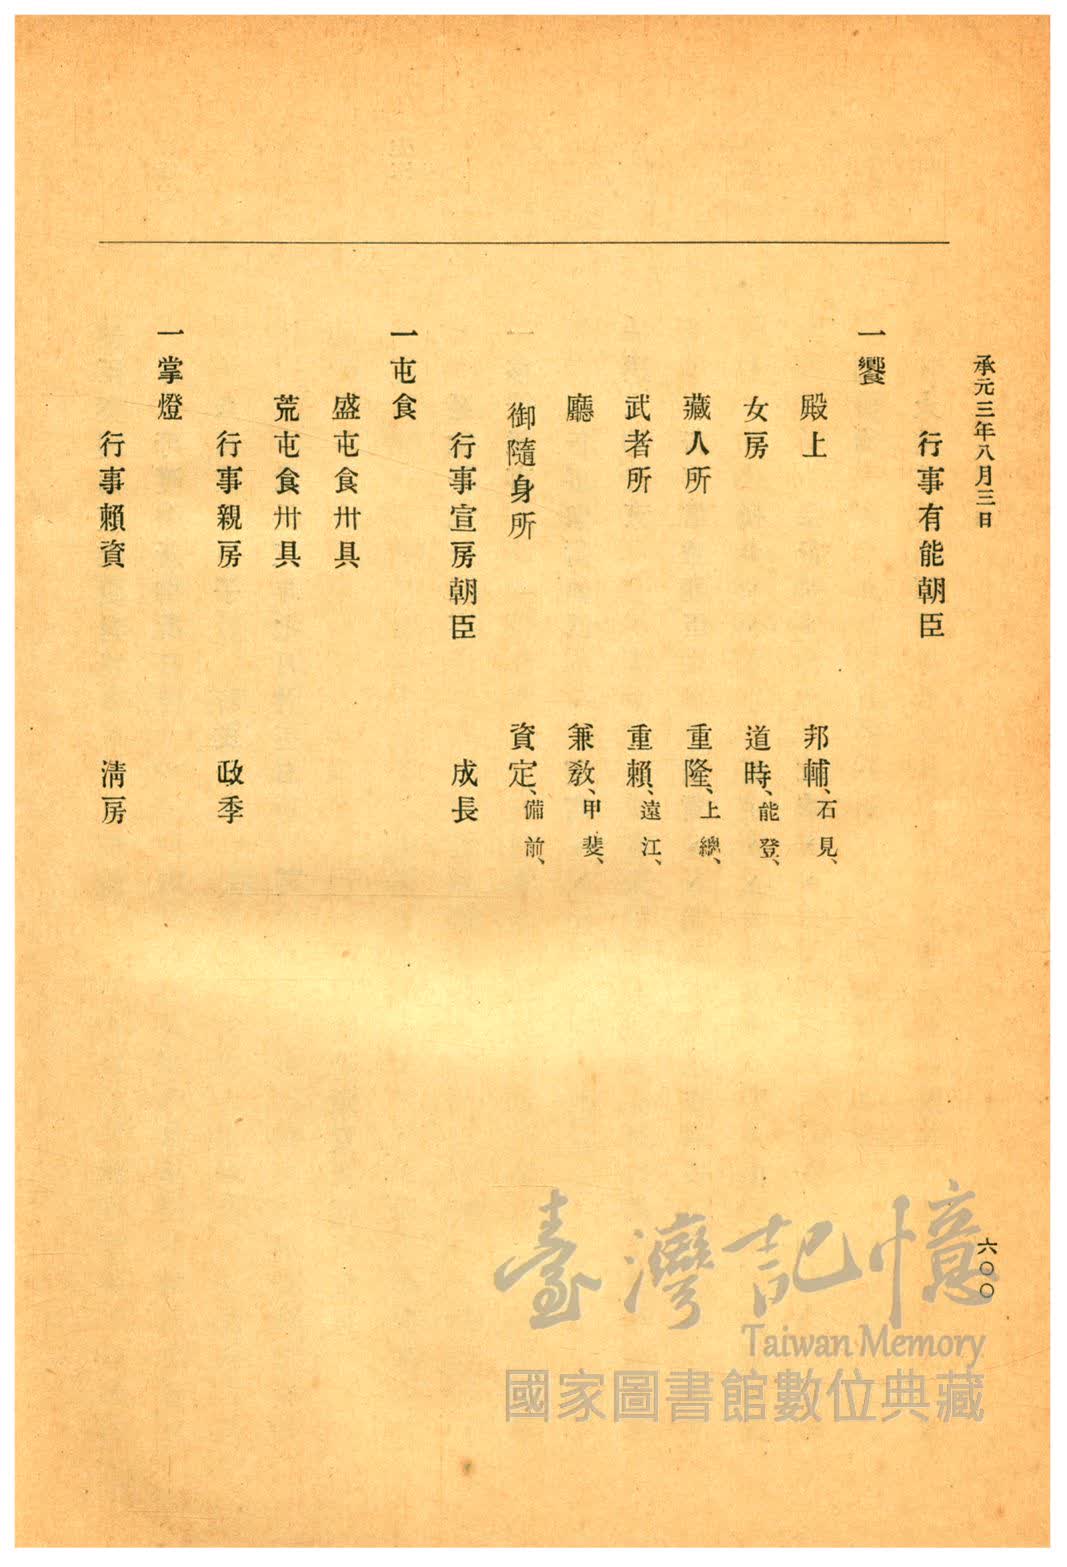 承元三年八月三日
六〇〇
行事有能朝臣
一饗
殿上 邦輔、石見、
女房 道時、能登、
藏人所 重隆、上總、
武者所 重賴、遠江、
廳 兼敎、甲斐、
御隨身所 資定、備前、
行事宣房朝臣 成長
一屯食
盛屯食卅具
荒屯食卅具
行事親房 政季
一掌燈
行事賴資 淸房
臺灣記憶
Taiwan Memory
國家圖書館數位典藏